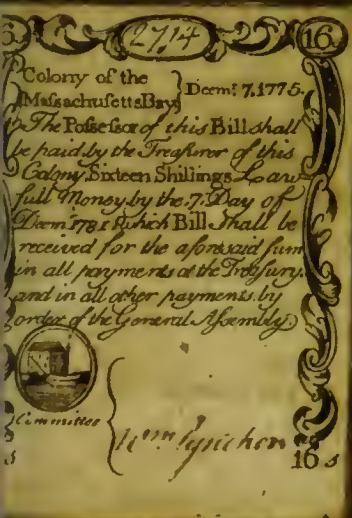 6. 2714 16
Colony of the
Massachusetts Bay } Decmr. 7, 1775.
The Possessor of this Bill shall
be paid by the Treasurer of this
Colony, Sixteen Shillings Law
full Money by the 7. Day of
Decmr. 1781 Which Bill Shall be
received for the aforesaid sum
in all payments at the Treasury.
and in all other payments by
order of the General Assembly.
Committee
Wm. Pynchon
s 16 s